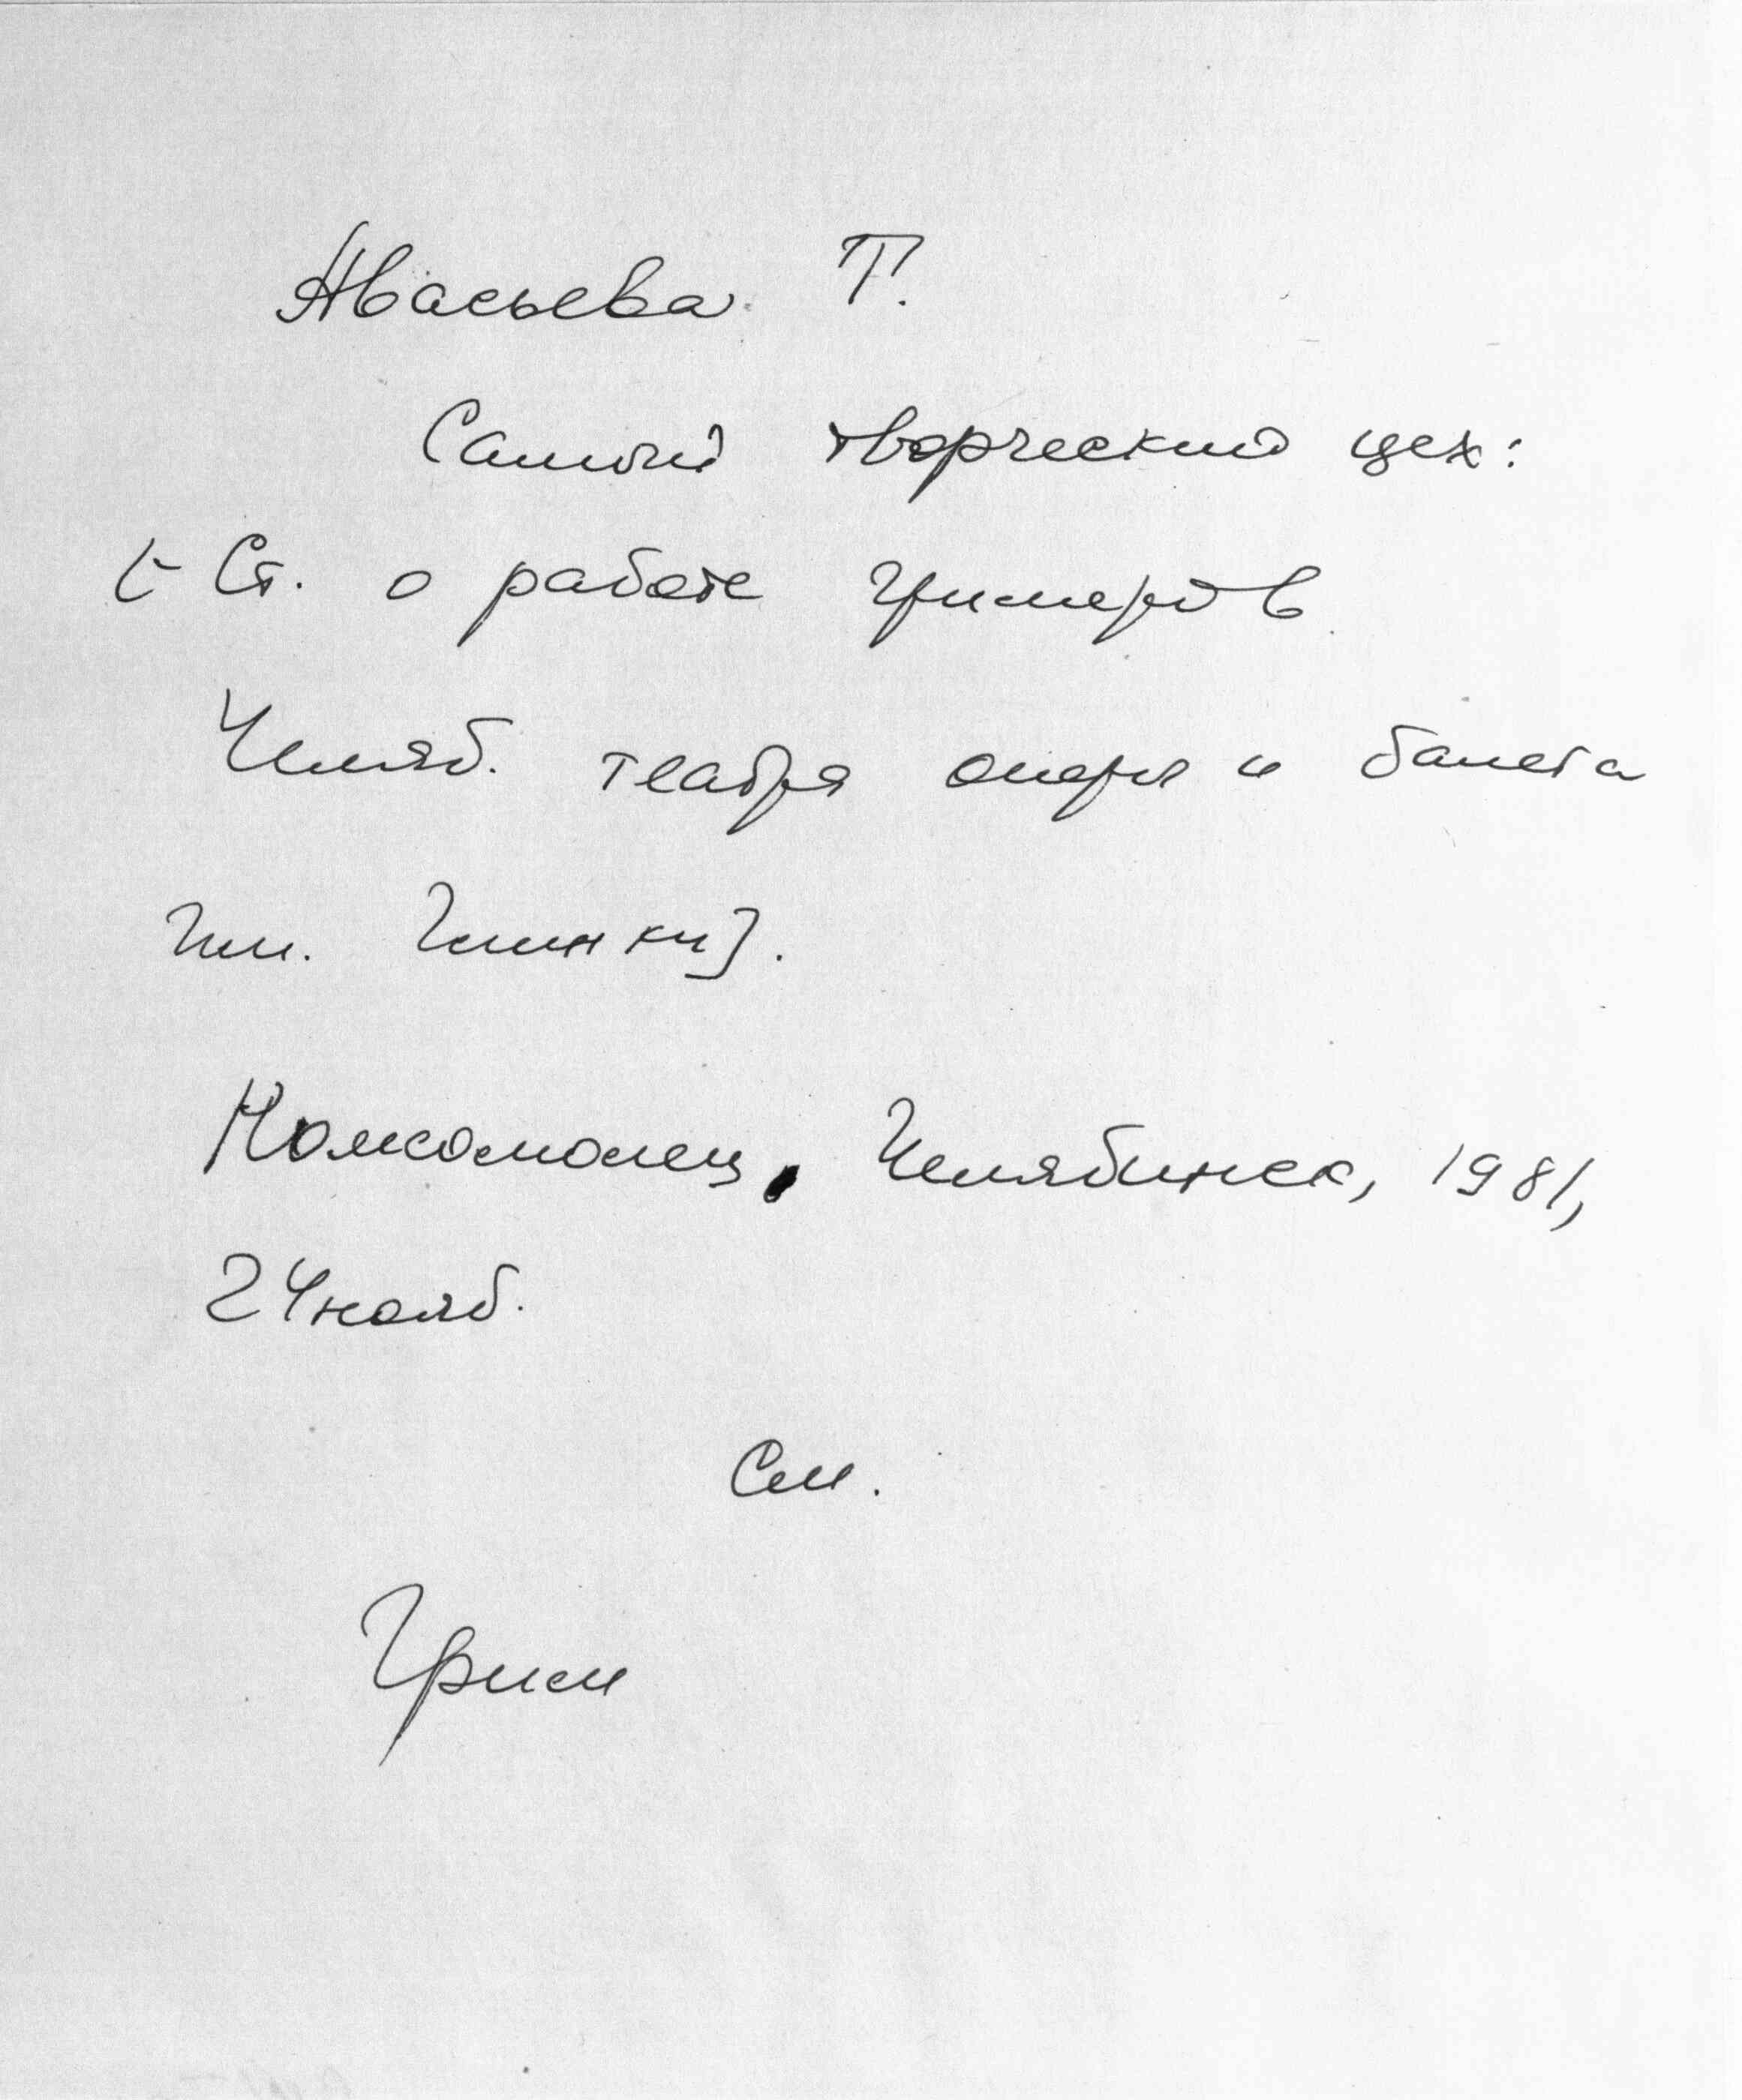 Авасьева Т.
Самый творческий цех:
[- Ст. о работе гримеров
Челяб. театра оперы и балета
им. Глинки].
Комсомолец, Челябинск, 1981,
24 нояб.
См.
Грим